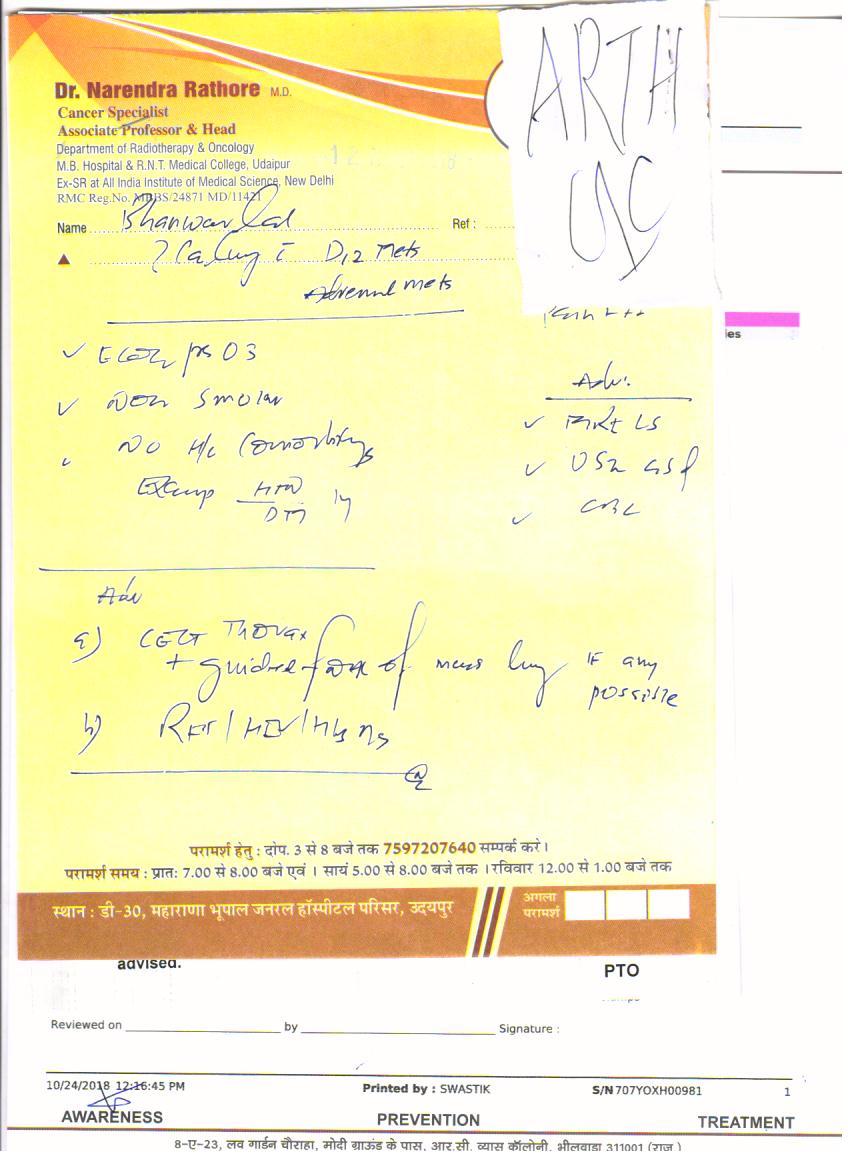 ARTH
USG
Dr. Narendra Rathore M.D.
Cancer Specialist
Associate Professor & Head
Department of Radiotherapy & Oncology
M.B. Hospital & R.N.T. Medical College, Udaipur
Ex-SR at All India Institute of Medical Science, New Delhi
RMC Reg.No. MBBS/24871 MD/11421
Name Bhanwar lal Ref :
? Ca lung c̄ D12 Mets
Adrenal mets
ECOG PS 03
Non Smoker
No H/o Comorbidity
Except HTN
DM
Adv:
LS
CBC
Adv
a) CECT Thorax
+ guided of mass lung IF any
possible
b) RFT / HIV / Hbs Ag
परामर्श हेतु : दोप. 3 से 8 बजे तक 7597207640 सम्पर्क करे।
परामर्श समय : प्रातः 7.00 से 8.00 बजे एवं । सायं 5.00 से 8.00 बजे तक । रविवार 12.00 से 1.00 बजे तक
स्थान : डी-30, महाराणा भूपाल जनरल हॉस्पीटल परिसर, उदयपुर
अगला
परामर्श
ies
advised.
PTO
Reviewed on by Signature :
10/24/2018 12:16:45 PM Printed by : SWASTIK S/N 707YOXH00981 1
AWARENESS PREVENTION TREATMENT
8-ए-23, लव गार्डन चौराहा, मोदी ग्राऊंड के पास, आर.सी. व्यास कॉलोनी, भीलवाड़ा 311001 (राज.)